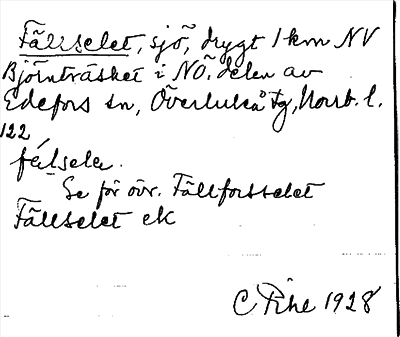 Fällselet, sjö, drygt 1 km NV
Björnträsket i NÖ. delen av
Edefors sn, Överluleå tg, Norrb. l.
122
fẹ́lsela.
Se för övr. Fällforsselet
Fällselet ek
C Pihl 1928